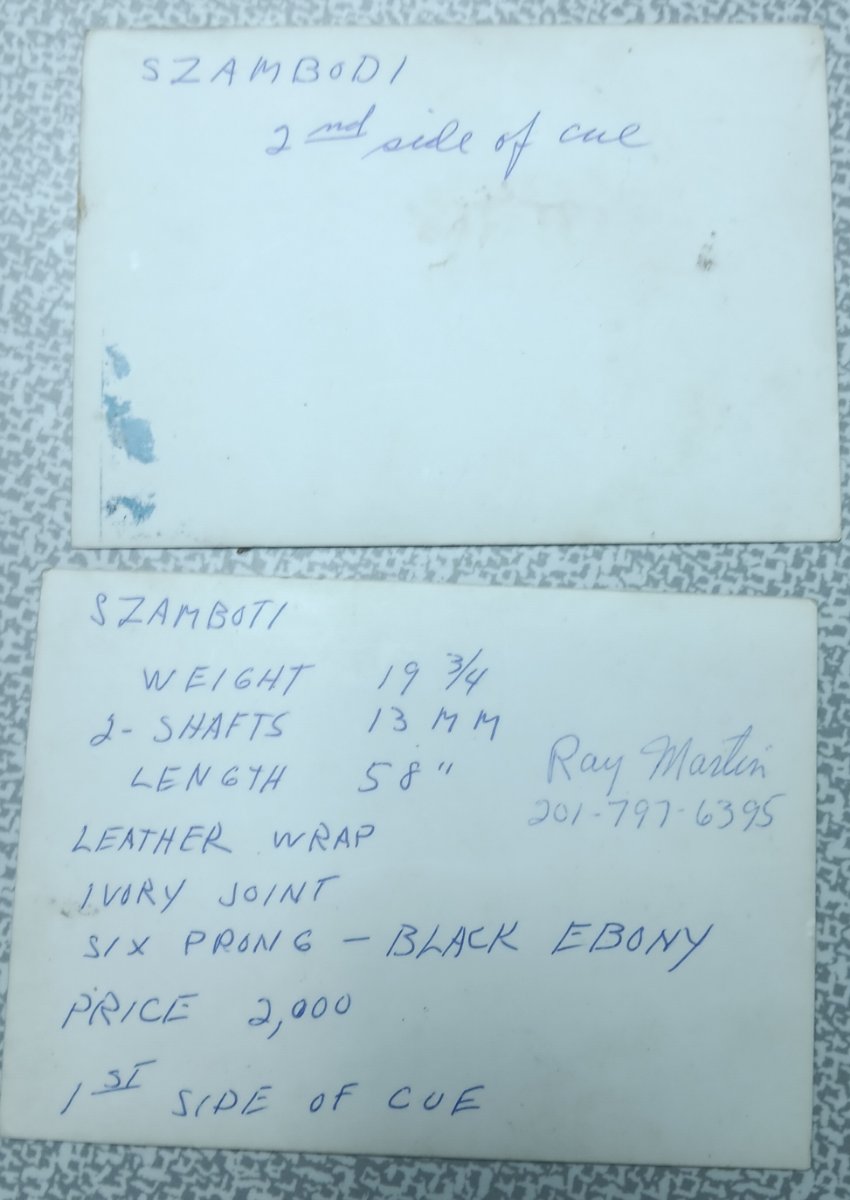 SZAMBODI
2nd side of cue
SZAMBOTI
WEIGHT 19 3/4
2- SHAFTS 13 MM
LENGTH 58"
Ray Martin
201-797-6395
LEATHER WRAP
IVORY JOINT
SIX PRONG - BLACK EBONY
PRICE 2,000
1ST SIDE OF CUE